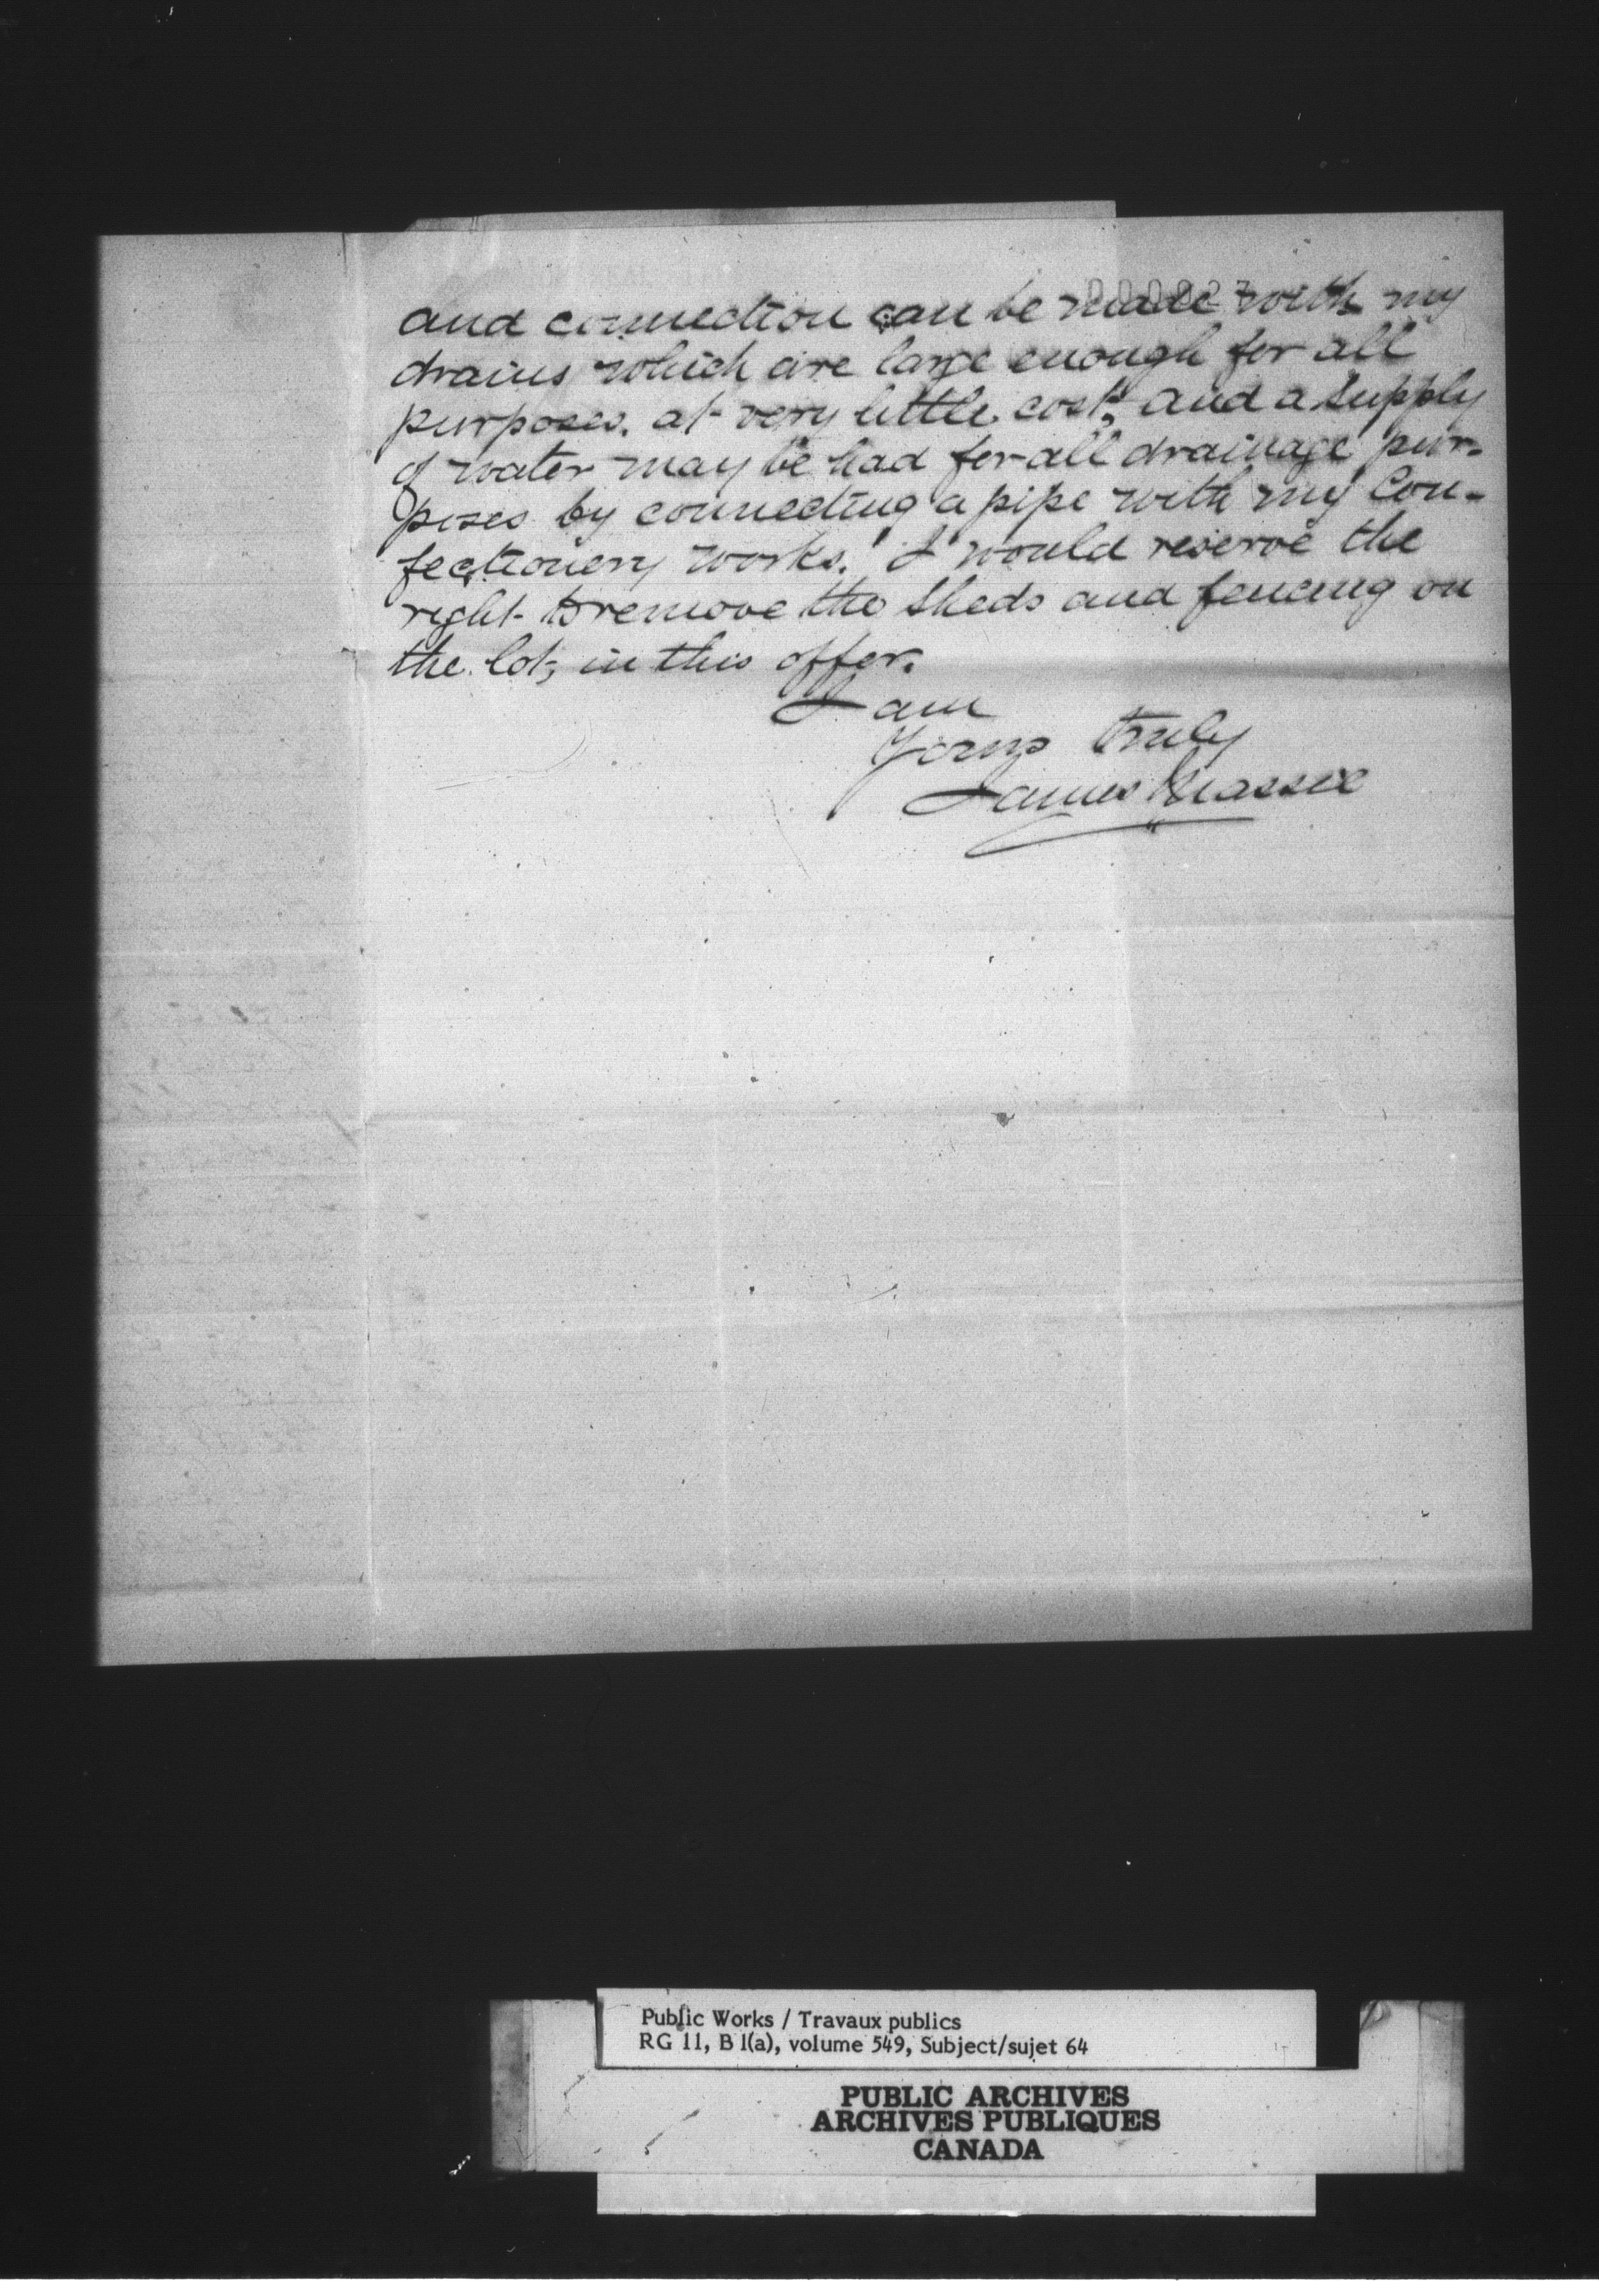 and connection can be made with my
drains which are large enough for all
purposes. at very little cost, and a supply
of water may be had for all drainage pur-
poses by connecting a pipe with my Con-
fectionery works. I would reserve the
right to remove the sheds and fencing on
the lot, in this offer.
I am
Yours truly
James Massie
Public Works / Travaux publics
RG 11, B 1(a), volume 549, Subject/sujet 64
PUBLIC ARCHIVES
ARCHIVES PUBLIQUES
CANADA